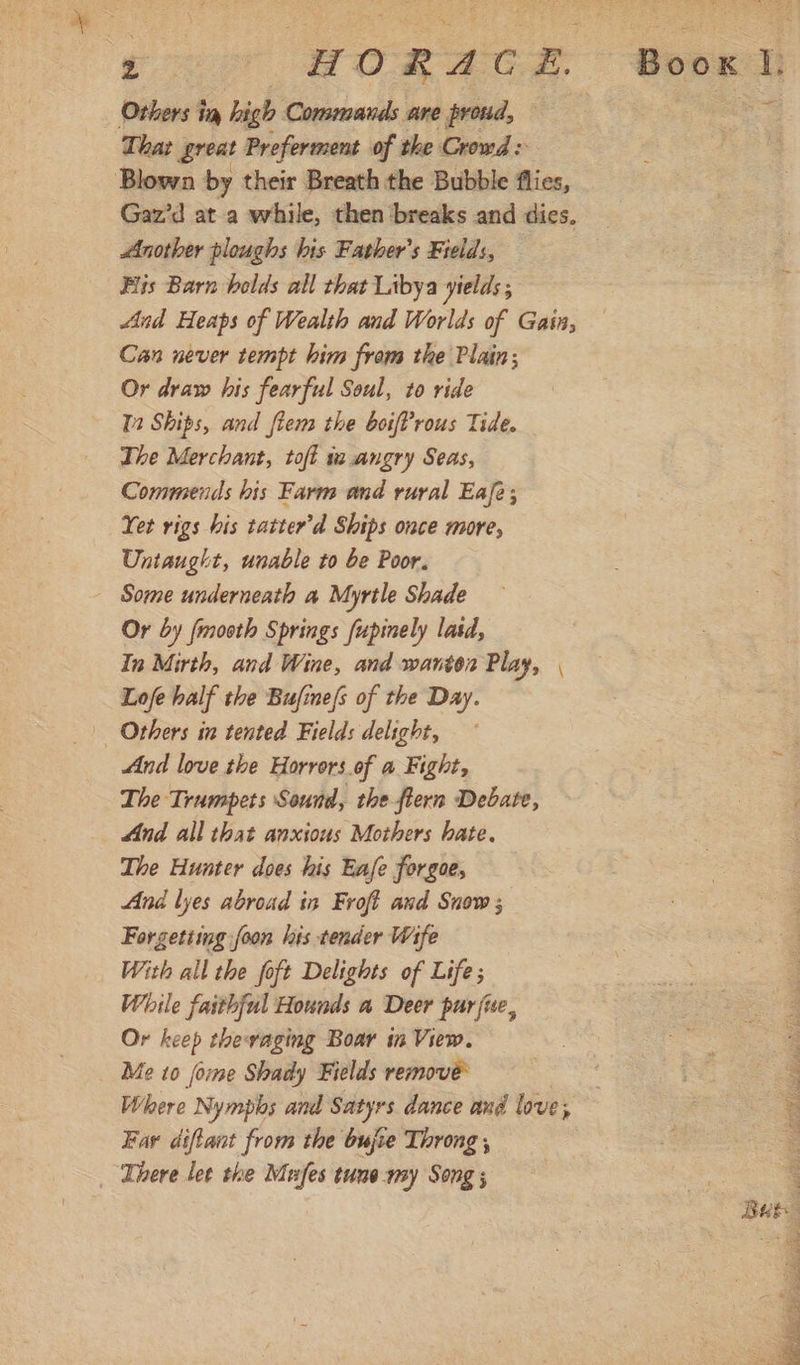 2 HORACE. Book I.
Others in high Commands are proud,
That great Preferment of the Crowd:
Blown by their Breath the Bubble flies,
Gaz'd at a while, then breaks and dies.
Another ploughs his Father's Fields,
His Barn holds all that Libya yields;
And Heaps of Wealth and Worlds of Gain,
Can never tempt him from the Plain;
Or draw his fearful Soul, to ride
In Ships, and ſtem the boiſt'rous Tide.
The Merchant, toſt in angry Seas,
Commends his Farm and rural Eaſe;
Yet rigs his tatter'd Ships once more,
Untaught, unable to be Poor.
Some underneath a Myrtle Shade
Or by ſmooth Springs ſupinely laid,
In Mirth, and Wine, and wanton Play,
Loſe half the Buſineſs of the Day.
Others in tented Fields delight,
And love the Horrors of a Fight,
The Trumpets Sound, the ſtern Debate,
And all that anxious Mothers hate.
The Hunter does his Eaſe forgoe,
And lyes abroad in Froſt and Snow;
Forgetting ſoon his tender Wife
With all the ſoft Delights of Life;
While faithful Hounds a Deer purſue,
Or keep the raging Boar in View.
Me to ſome Shady Fields remove
Where Nymphs and Satyrs dance and love;
Far diſtant from the buſie Throng;
There let the Muſes tune my Song;
But